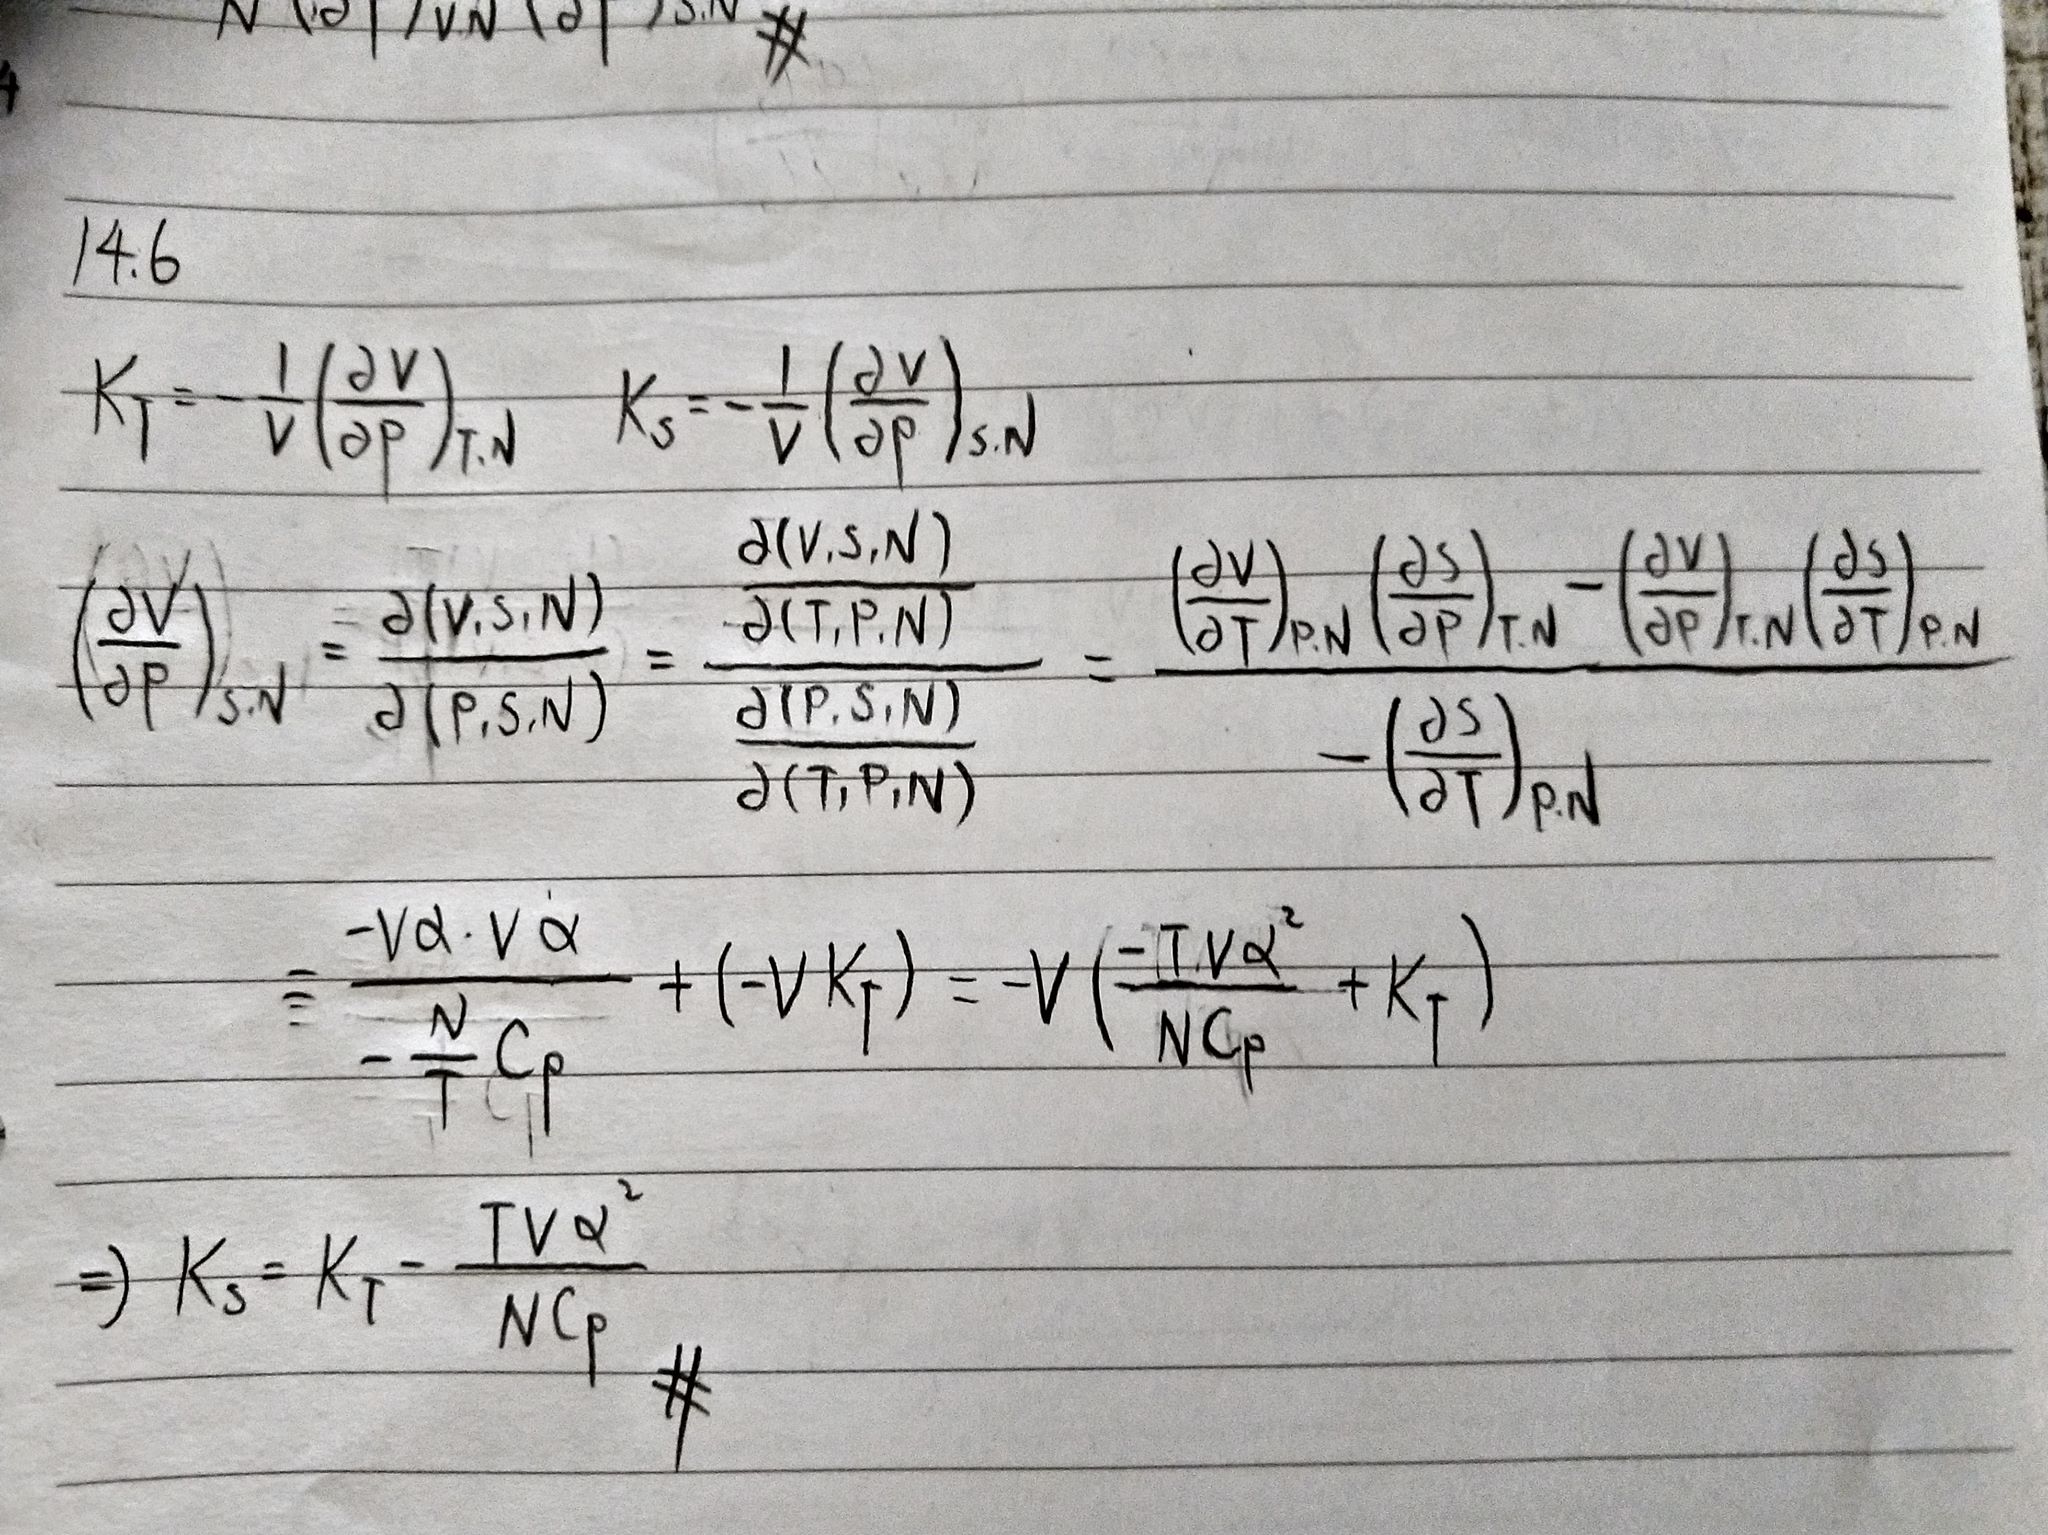 N (∂P)V.N (∂P)S.N #
14.6
K_T = -1/V (∂V/∂P)_T.N K_S = -1/V (∂V/∂P)_S.N
(∂V/∂P)_S.N = ∂(V,S,N)/∂(P,S,N) = [∂(V,S,N)/∂(T,P,N)]/[∂(P,S,N)/∂(T,P,N)] = [(∂V/∂T)_P.N (∂S/∂P)_T.N - (∂V/∂P)_T.N (∂S/∂T)_P.N]/[-(∂S/∂T)_P.N]
= (-Vα·Vα)/(-N/T C_P) + (-V K_T) = -V (-TVα²/NC_P + K_T)
⇒) K_S = K_T - TVα²/NC_P #